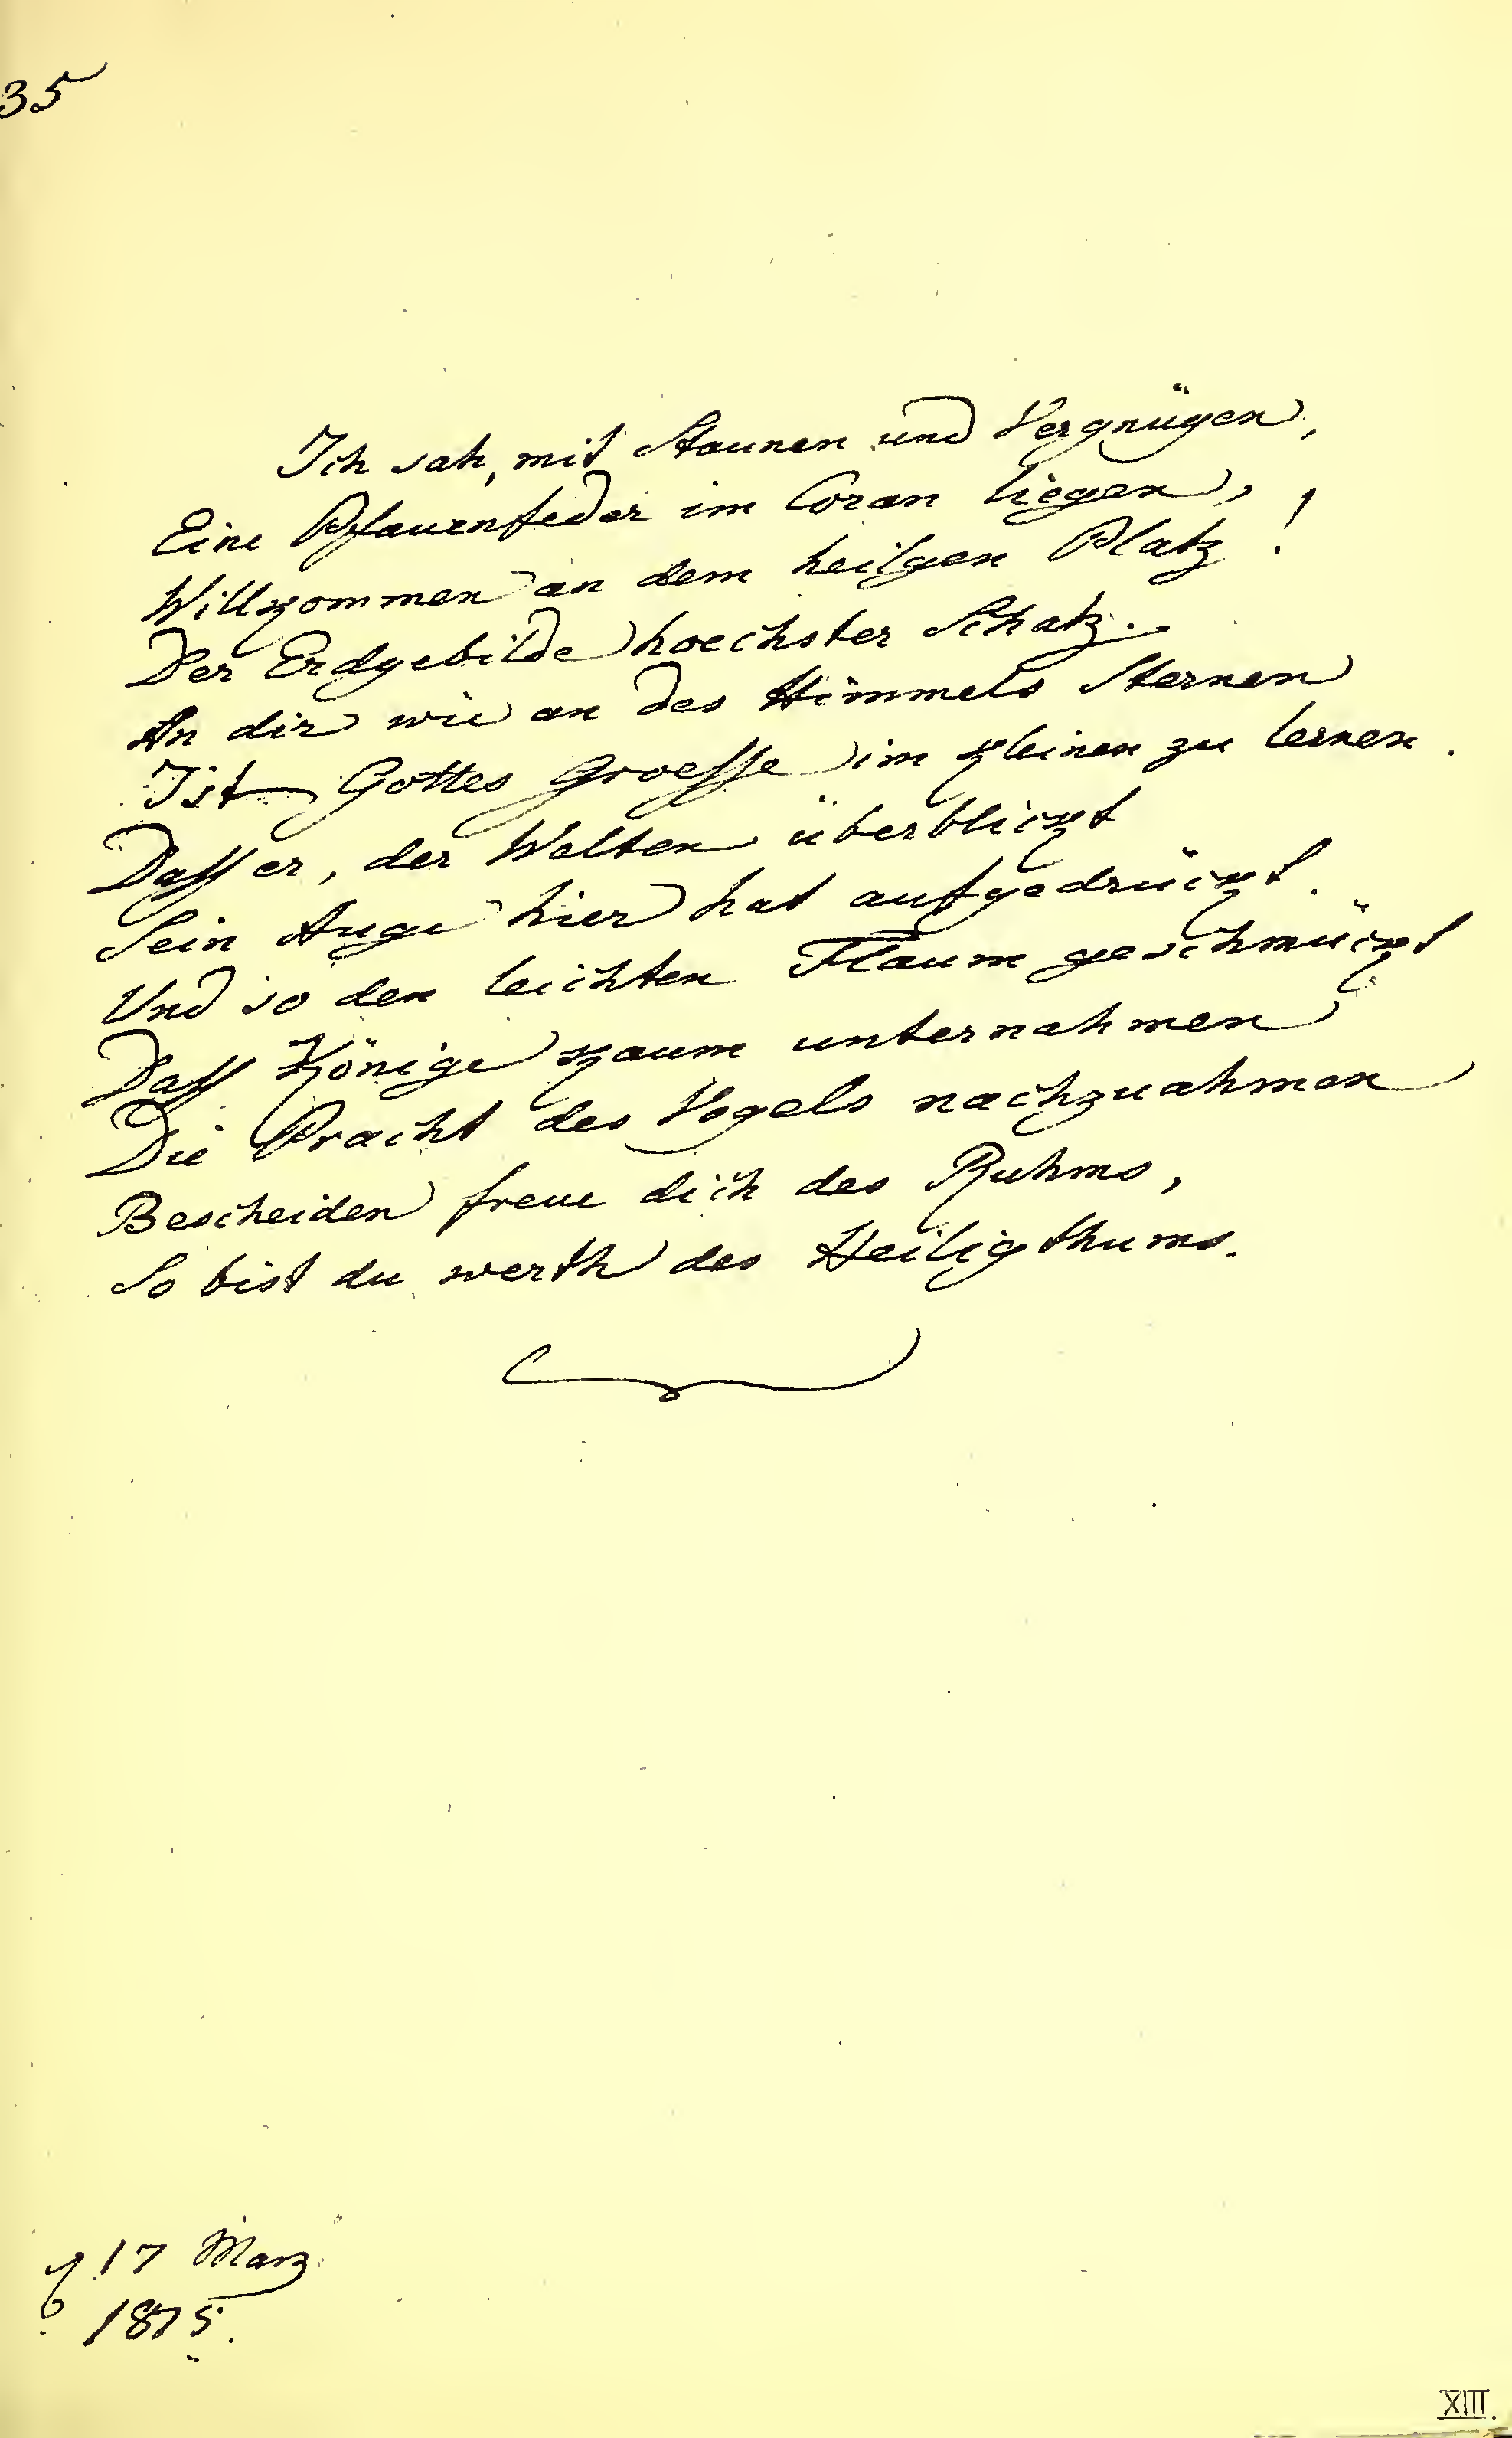 35
Ich sah, mit Staunen und Vergnügen,
Eine Pfauenfeder im Coran liegen,
Willkommen an dem heilgen Platz!
Der Erdgebilde hoechster Schatz.
An dir wie an des Himmels Sternen
Ist Gottes Groesse im kleinen zu lernen.
Dass er, der Welten überblickt
Sein Auge hier hat aufgedrückt.
Und so den leichten Flaum geschmückt
Dass Könige kaum unternahmen
Die Pracht des Vogels nachzuahmen
Bescheiden freue dich des Ruhms,
So bist du werth des Heiligthums.
17 Marz
1815.
XIII.